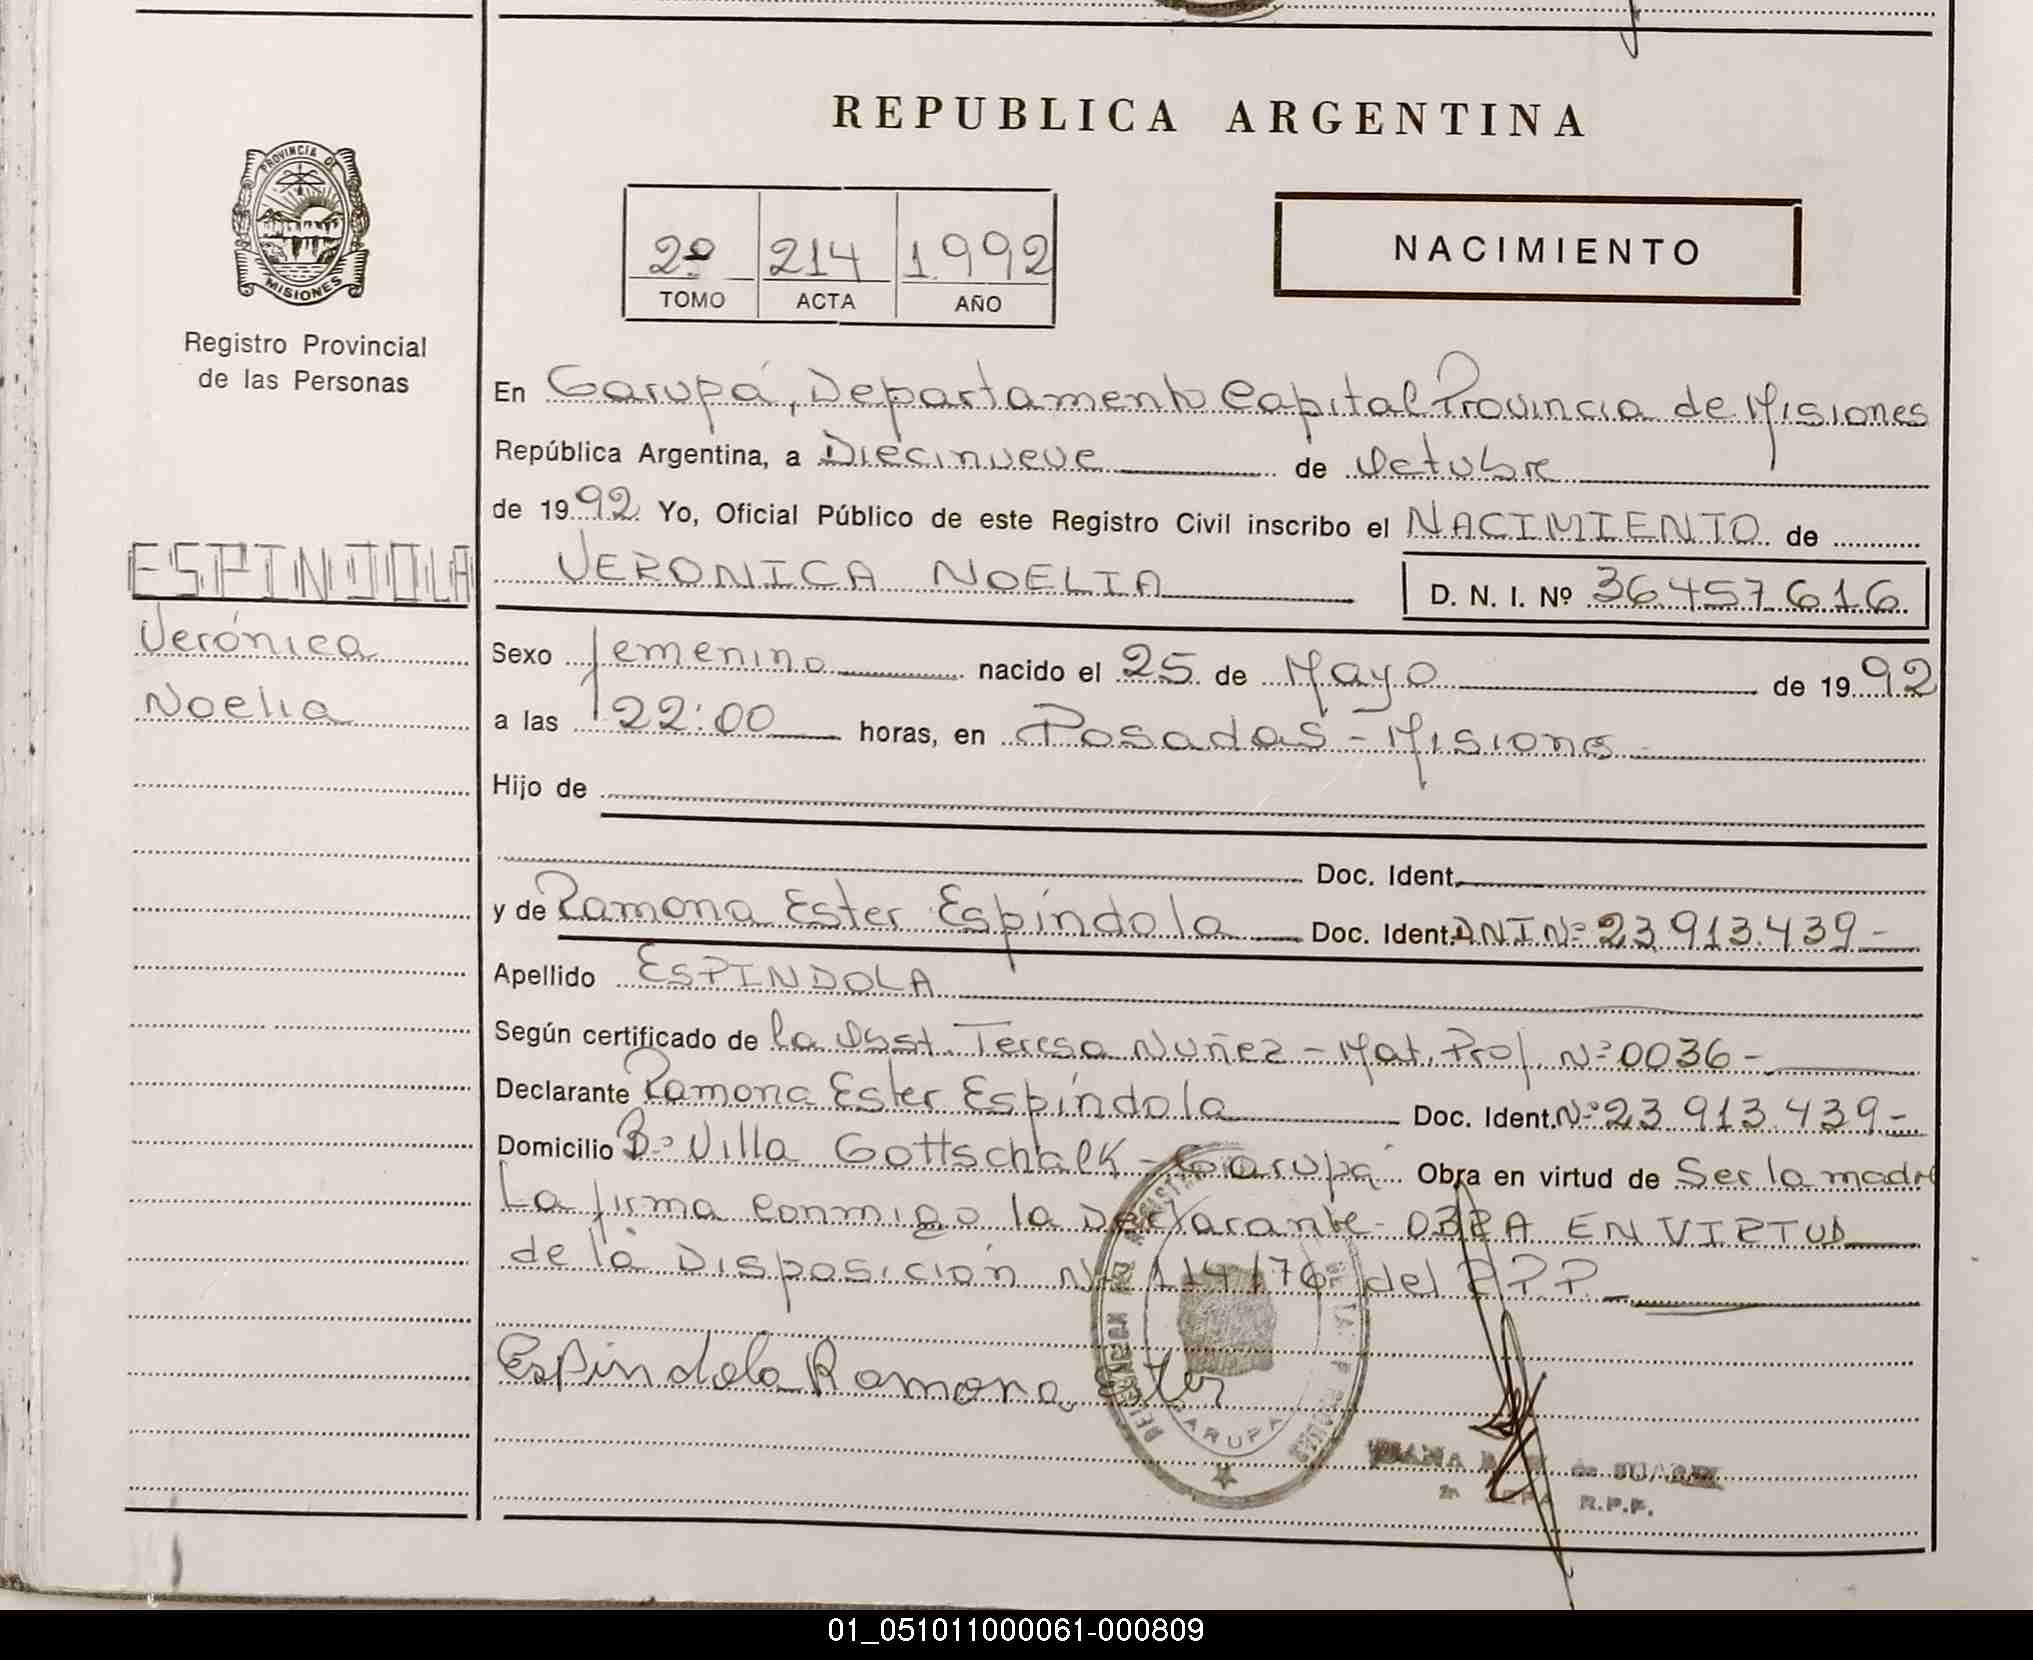 REPUBLICA ARGENTINA
PROVINCIA DE
MISIONES
Registro Provincial
de las Personas
2º 214 1992
TOMO ACTA AÑO
NACIMIENTO
ESPINDOLA
Verónica
Noelia
En Garupá, Departamento Capital Provincia de Misiones
República Argentina, a Diecinueve de Octubre
de 1992 Yo, Oficial Público de este Registro Civil inscribo el NACIMIENTO de
VERONICA NOELIA D. N. I. Nº 36457616
Sexo femenino nacido el 25 de Mayo de 1992
a las 22:00 horas, en Posadas - Misiones
Hijo de
Doc. Ident.
y de Ramona Ester Espíndola Doc. Ident. DNI Nº 23.913.439-
Apellido ESPINDOLA
Según certificado de la Obst. Teresa Nuñez - Mat. Prof. Nº 0036-
Declarante Ramona Ester Espíndola Doc. Ident. Nº 23.913.439-
Domicilio Bº Villa Gottschalk - Garupá Obra en virtud de Ser la madre
La firma conmigo la Declarante - OBRA EN VIRTUD
de la Disposición Nº 114/76 del R.P.P.
Espindola Ramona Ester
GARUPA
de SUAREZ
R.P.P.
01_051011000061-000809